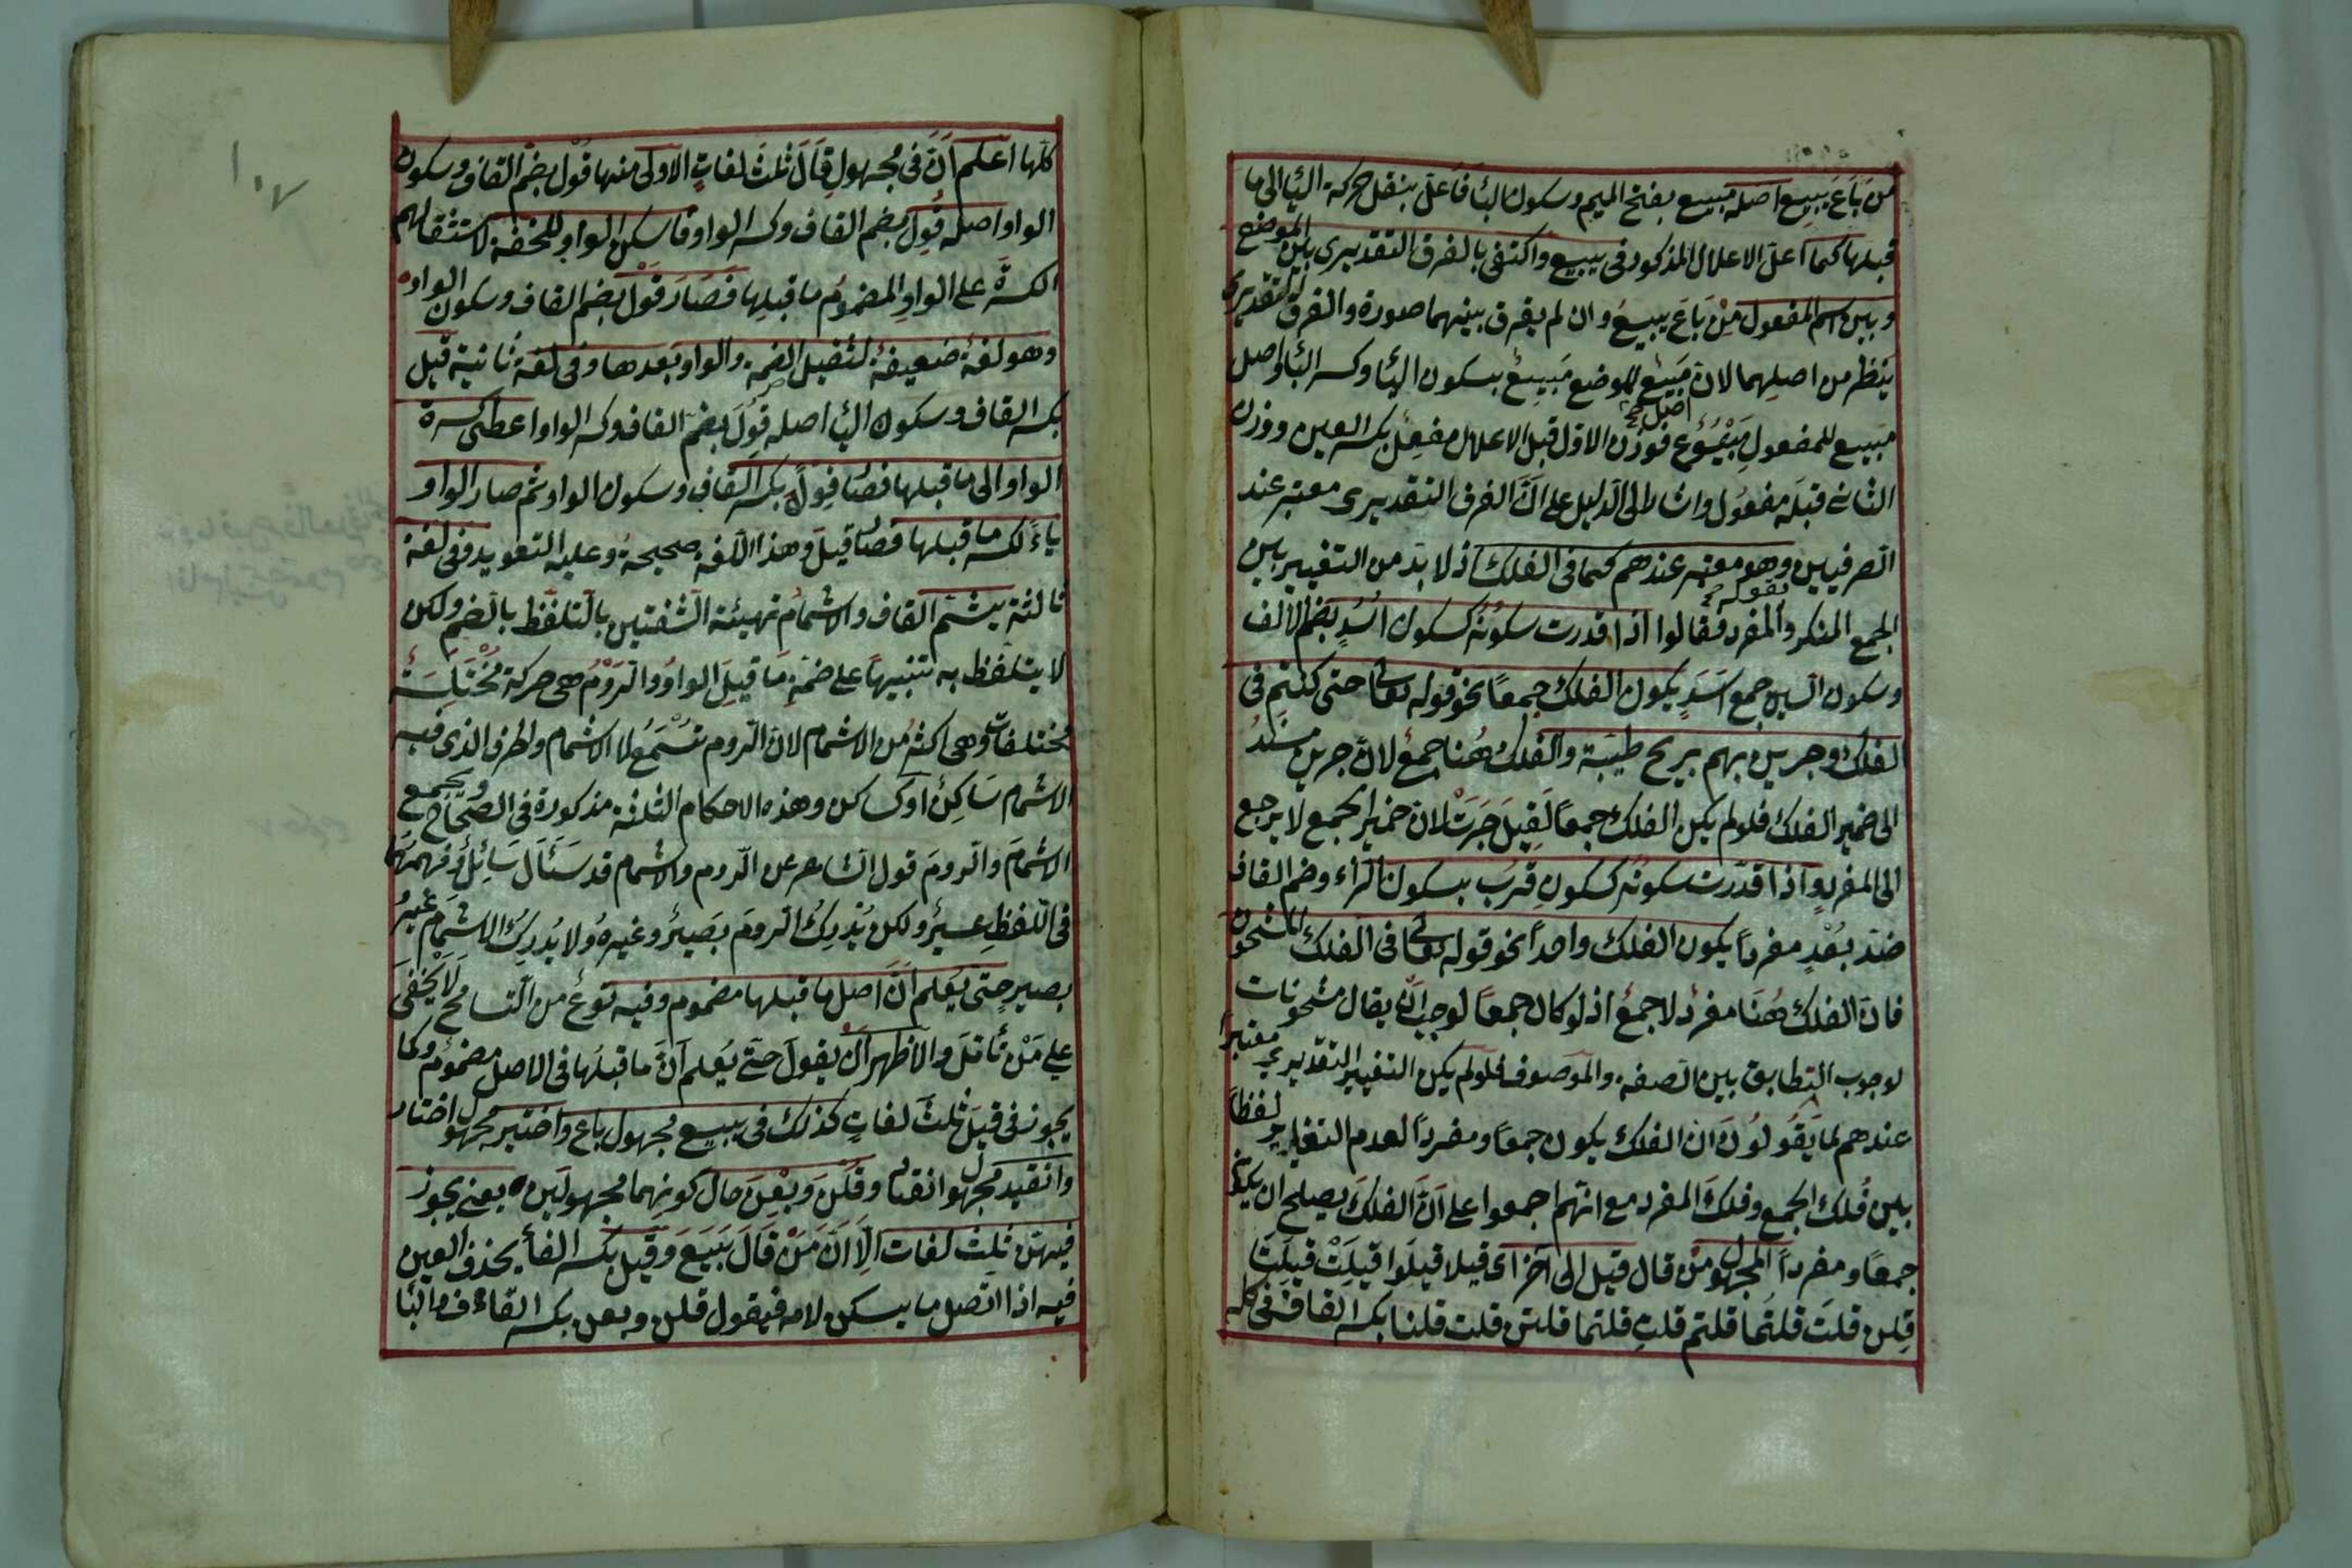 من بَاعَ يبيع اصله مَبْيِع بفتح الميم وسكون الئا فَاَعلّ بنقل حركة الئا الى ما
قبلها كما اعلّ الاعلال المذكور فى يبيع واكتفى بالفرق التقديرى بين الموضع
وبين اسم المفعول مِنْ بَاعَ يبيعُ وان لم يفرق بينهما صورة والفرق التقديرى
ينظر من اصلهما لان مَبِيْع للموضع مَبْيِعٌ بسكون الئا وكسر الئا واصل
مَبيع للمفعول مَبْيُوْع فوزن الاوّل قبل الاعلال مفعِلٌ بكسر العين ووزن
الثانى قبله مفعُول واشار الى الدليل على انّ الفرق التقديرى معتبر عند
الصرفيين وهو معتبر عندهم كما فى الفلك اذ لا بدّ من التغيير بين
الجمع المنكر والمفرد فقالوا اذا قدرت سكونُه كسكون اُسْدٍ بضم الالف
وسكون السين جمع اَسَدٍ يكون الفلك جمعاً نحو قوله تعالى حتى كنتم فى
الفلك وجرين بهم بريح طيبة والفلكُ هُنا جمعٌ لانّ جرين مسندُ
الى ضمير الفلك فلو لم يكن الفلك جمعاً لَقِيلَ جَرَتْ لان ضمير الجمع لا يرجع
الى المفرد واذا قدّرت سكونُه كسكون قُرْب بسكون الرٔاء وضم القاف
ضدّ بُعْدٍ مفرداً يكون الفلك واحداً نحو قوله تعالى فى الفلك المشحون
فان الفلك هُنَا مفردٌ لا جمعٌ اذ لو كان جمعاً لوجب ان يقال مشحونات
لوجوب التطابق بين الصفة والموصوف فلو لم يكن التغيير التقديري معتبراً
عندهم لما يَقُولُونَ انّ الفلك يكون جمعاً ومفرداً لعدم التغاير لفظاً
بين فُلك الجمع وفلكَ المفرد مع انّهم اجمعوا على اَنّ الفلكَ يصلح ان يكون
جمعًا ومفرداً المجهول من قال قيل الى آخر اى قيلا قيلوا قيلَتْ قيلتا
قِلن قلتَ قلتُما قلتم قلتِ قلتما قلتن قلت قلنا بكسر القاف فى كله
كلّها اعلم اَنّ فى مجهول قَالَ ثلثَ لغاتٍ الاولى منها قُوْل بضمّ القاف وسكون
الواو اصله قُوِل بضم القاف وكسر الواو فاسكن الواو للخفة لاستثقالهم
الكسرَة على الواوِ المضمُوم ما قبلها فصَارَ قُوْل بضم القاف وسكون الواو
وهو لغة ضعيفة لثقيل الضمة والواو بعدها وفى لغة ثانية قيل
بكسر القاف وسكون الئا اصله قُوِلَ بضمّ القاف وكسر الواو اعطى كسرة
الواو الى ما قبلها فصار قِوْلَ بكسر القاف وسكون الواو ثم صار الواو
ياءً لكسر ما قبلها فصار قيلَ وهذا اللغة صحيحة وعليه التعويد وفى لغة
ثالثة يشمّ القاف والاشمامُ تهيئة الشفتين بالتلفّظ بالضم ولكن
لا يتلفظ به تنبيهاً على ضمةِ مَا قبِلَ الواوِ والرَّوْمُ هى حركة مُخْتَلِسَة
مختلفات وهى اكثر من الاشمام لانّ الروم تُسْمَعُ لا الاشمام والحرف الذى فيه
الاشمام سَاكِنٌ او كساكن وهذه الاحكام الثلثة مذكورة فى الصّحاح ويجمع
الاشمامَ والرومَ قول الشاعر عن الروم والاشمام قد سَئَال سَائِلٌ وفهمهَا
فى اللفظِ عسيرٌ ولكن يُدْرِكُ الرومَ بَصيرٌ وغيرهُ ولا يُدرِكُ الاشمام غيرُ
بصيرٍ حتى يُعلم انّ اصل ما قبلها مضموم وفيه نوعٌ من التسامح لا يخفى
على مَنْ تأمّل والاظهر انْ يقول حتّى يُعلم اَنّ ما قبلها فى الاصل مضمُوم وكما
يجوز فى قيلَ ثلثَ لغاتٍ كذلك فى يبيع مجهول باع واختير مجهول اختار
وانقيد مجهول انقاد وقُلْنَ وبِعْنَ حال كونهما مجهولَين يعنى يجوز
فيهنّ ثلث لغات اِلّا اَنّ مَنْ قَالَ بيَعَ وقيل بكسر الفأ يحذف العين
فيه اذا اتّصل ما يسكن لامه فيقول قلن وبعن بكسر القاف والبٔا